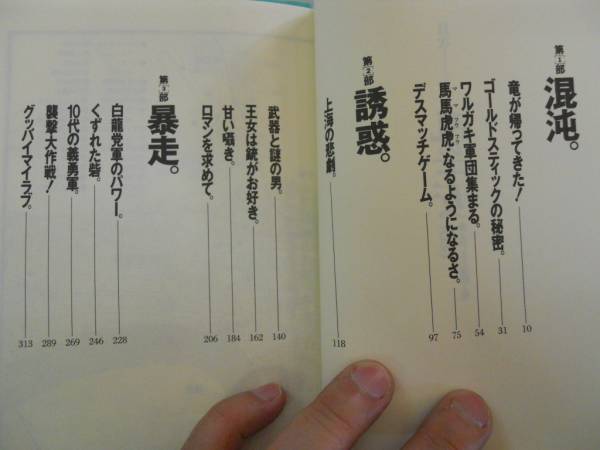 第1部
混沌。
竜が帰ってきた! 10
ゴールドスティックの秘密。 31
ワルガキ軍団集まる。 54
馬馬虎虎・なるようになるさ。 75
デスマッチゲーム。 97
第2部
誘惑。
上海の悲劇。 118
武器と謎の男。 140
王女は銃がお好き。 162
甘い囁き。 184
ロマンを求めて。 206
第3部
暴走。
白龍党軍のパワー。 228
くずれた砦。 246
10代の義勇軍。 269
襲撃大作戦! 289
グッバイマイラブ。 313